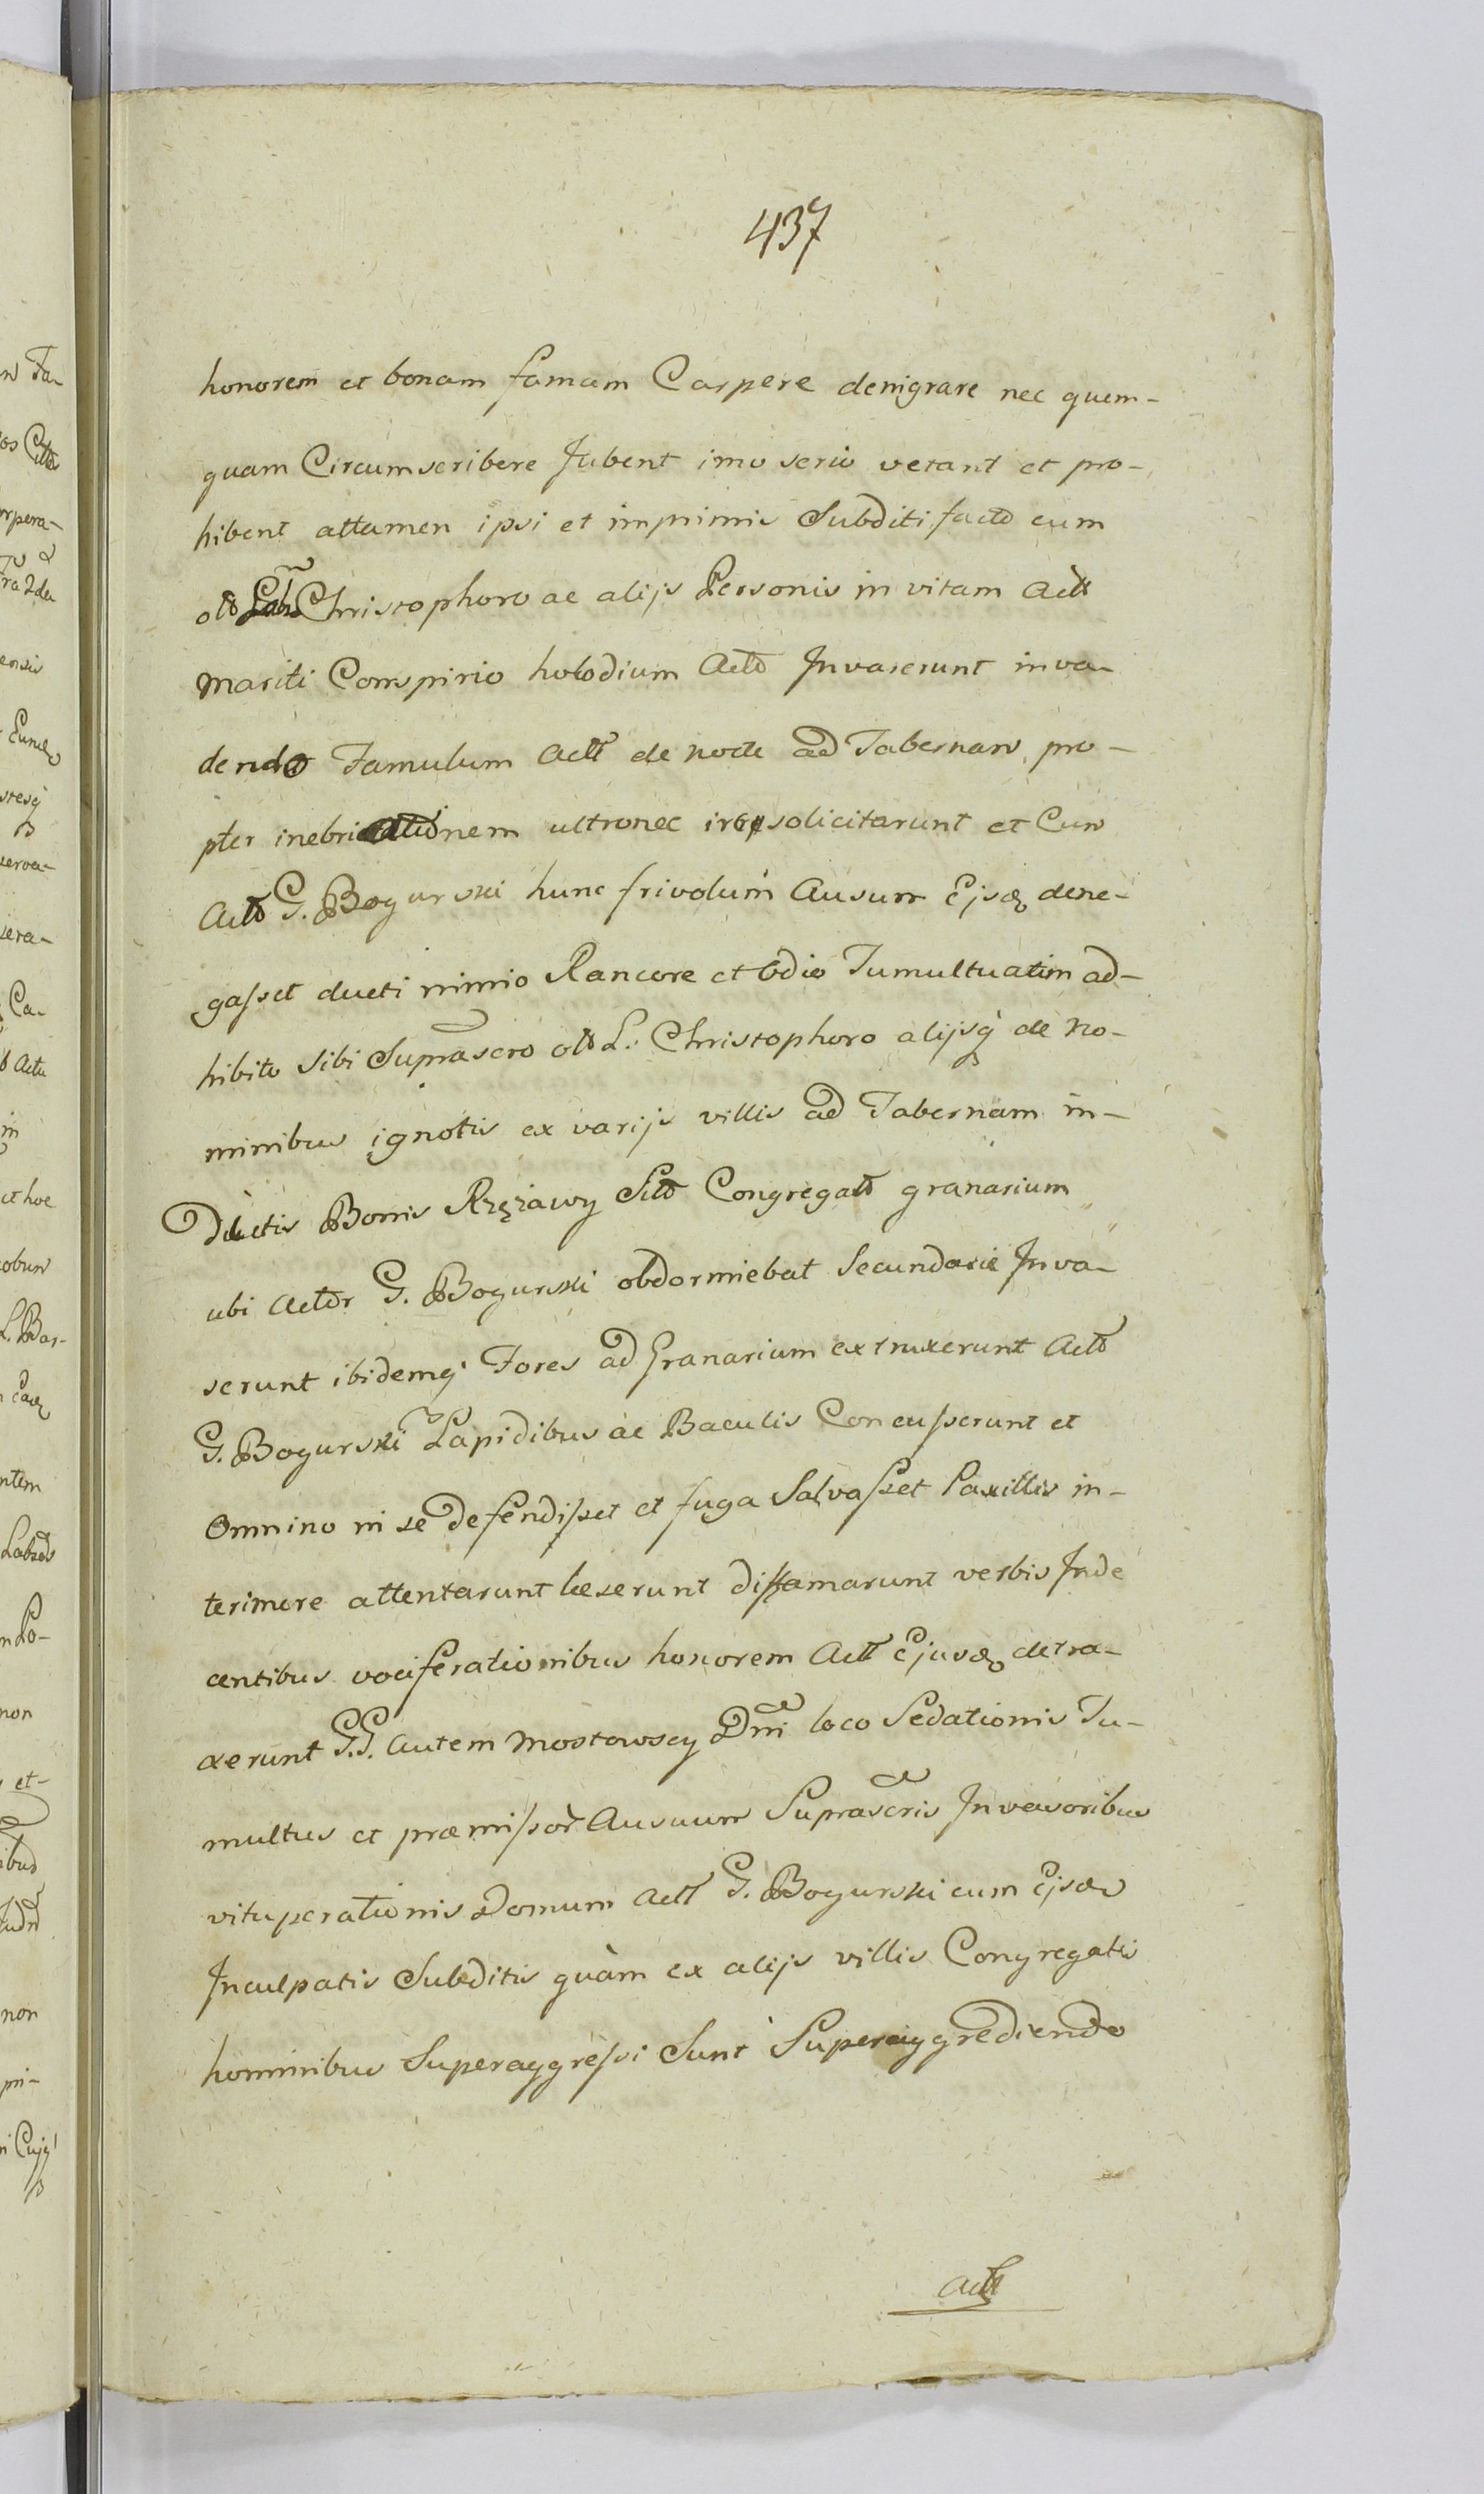 437
honorem et bonam famam Carpere denigrare nec quem-
quam Circumscribere Jubent imo serio vetant et pro-
hibent attamen ipsi et imprimis Subditi facto cum
olto Labso Christophoro ac alijs Personis in vitam Actt
Mariti Conspirio hołodium Actto Invaserunt inva-
dendo Famulum Actt de nocte ad Tabernam pro-
pter inebriationem ultronee solicitarunt et Cum
Actto G. Bogurski hunc frivolum Ausum Ejsd. dene-
gasset ducti nimio Rancore et odio Tumultuatim ad-
hibito sibi Suprascro olto L. Christophoro alijsq de no-
minibus ignotis ex varijs villis ad Tabernam in-
Ductis Bonis Rzężawy Sitto Congregatto granarium
ubi Actor G. Bogurski obdormiebat Secundarie Inva-
serunt ibidemq Fores ad Granarium extruxerunt Actto
G. Bogurski Lapidibus ac Baculis Concusserunt et
Omnino ni se defendisset et fuga Salvasset Paxillis in-
terimere attentarunt læserunt diffamarunt verbis Inde
centibus vociferationibus honorem Actt Ejusd. detra-
xerunt G.G. autem Mostowscy Dni loco Sedationis Tu-
multus et præmissor Ausuum Suprascris Invasoribus
vituperationis Domum Actt G. Bogurski cum Ejsd.
Inculpatis Subditis quàm ex alijs villis Congregatis
hominibus Superaggressi Sunt Superaggrediendo
Actt